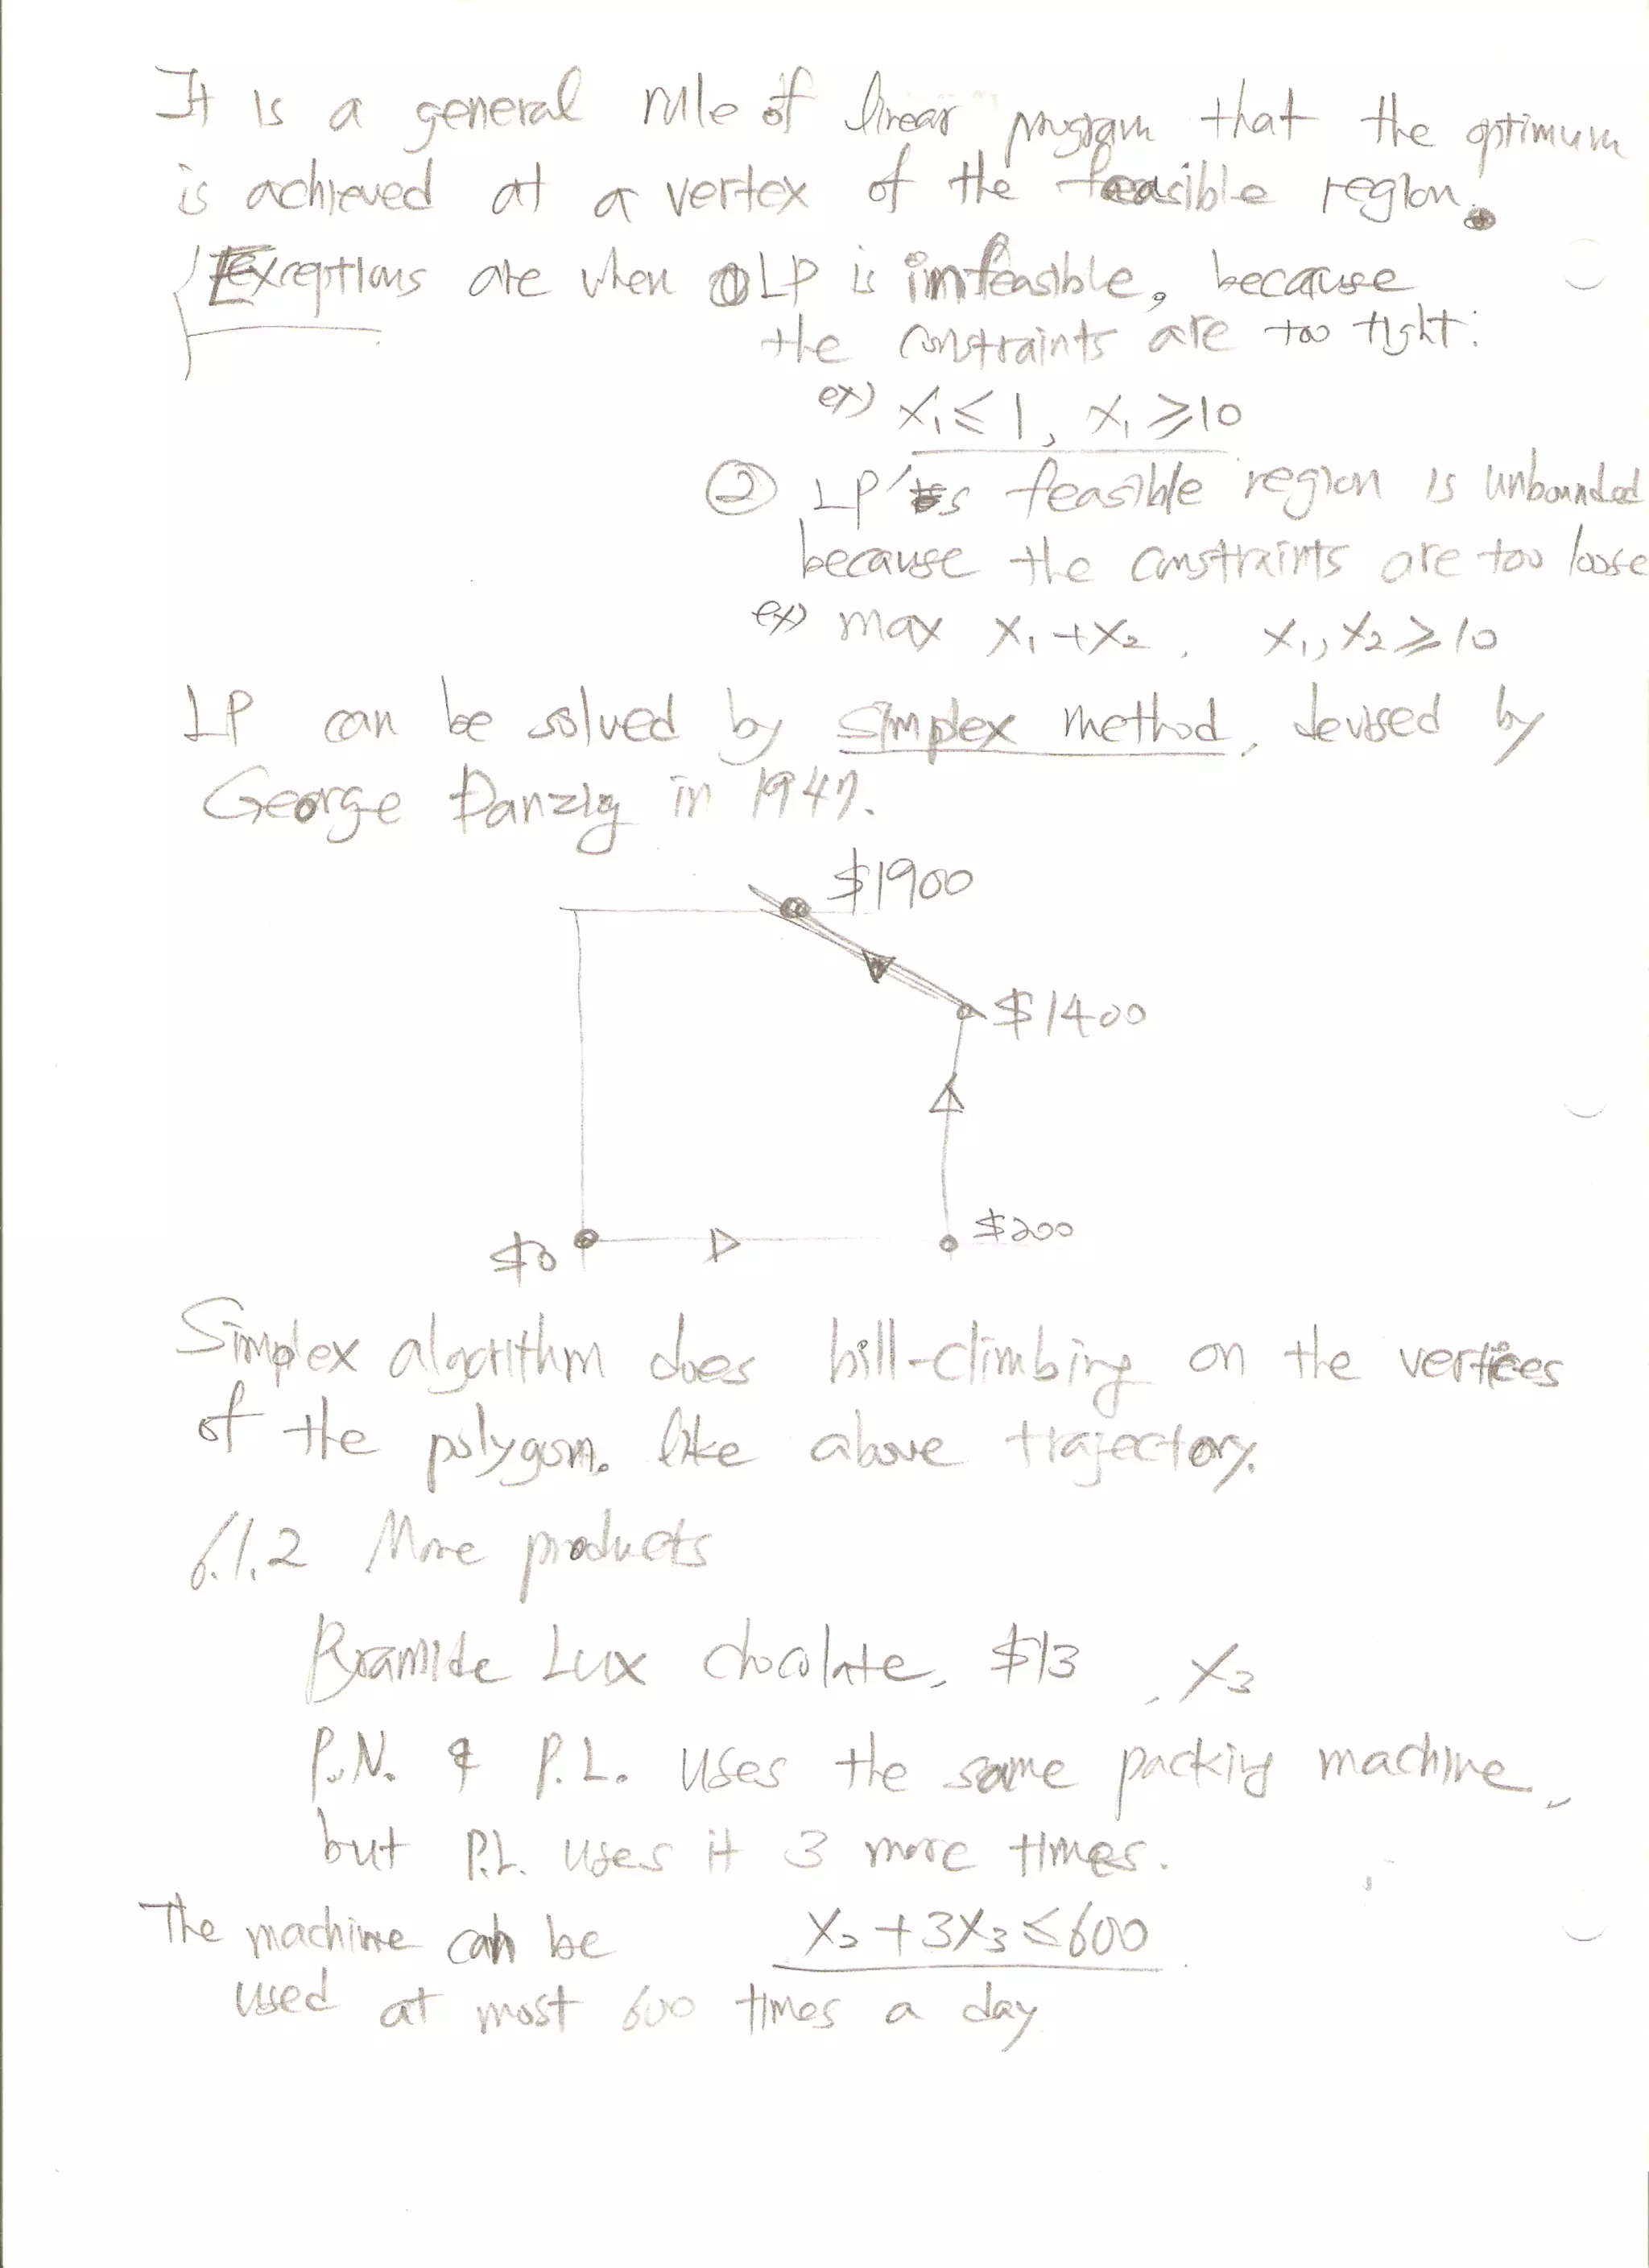 It is a general rule of linear program that the optimum
is achieved at a vertex of the feasible region.
Exceptions are when ① LP is infeasible, because
the constraints are too tight:
ex) x₁ ≤ 1, x₁ ≥ 10
② LP's feasible region is unbounded
because the constraints are too loose
ex) max x₁ + x₂, x₁, x₂ ≥ 10
LP can be solved by simplex method, devised by
George Danzig in 1947.
$1900
$1400
$200
$0
Simplex algorithm does hill-climbing on the vertices
of the polygon. like above trajectory.
6.1.2 More products
Pyramide Lux chocolate, $13, x₃
P.N. & P.L. uses the same packing machine,
but P.L. uses it 3 more times.
The machine can be
x₂ + 3x₃ ≤ 600
used at most 600 times a day